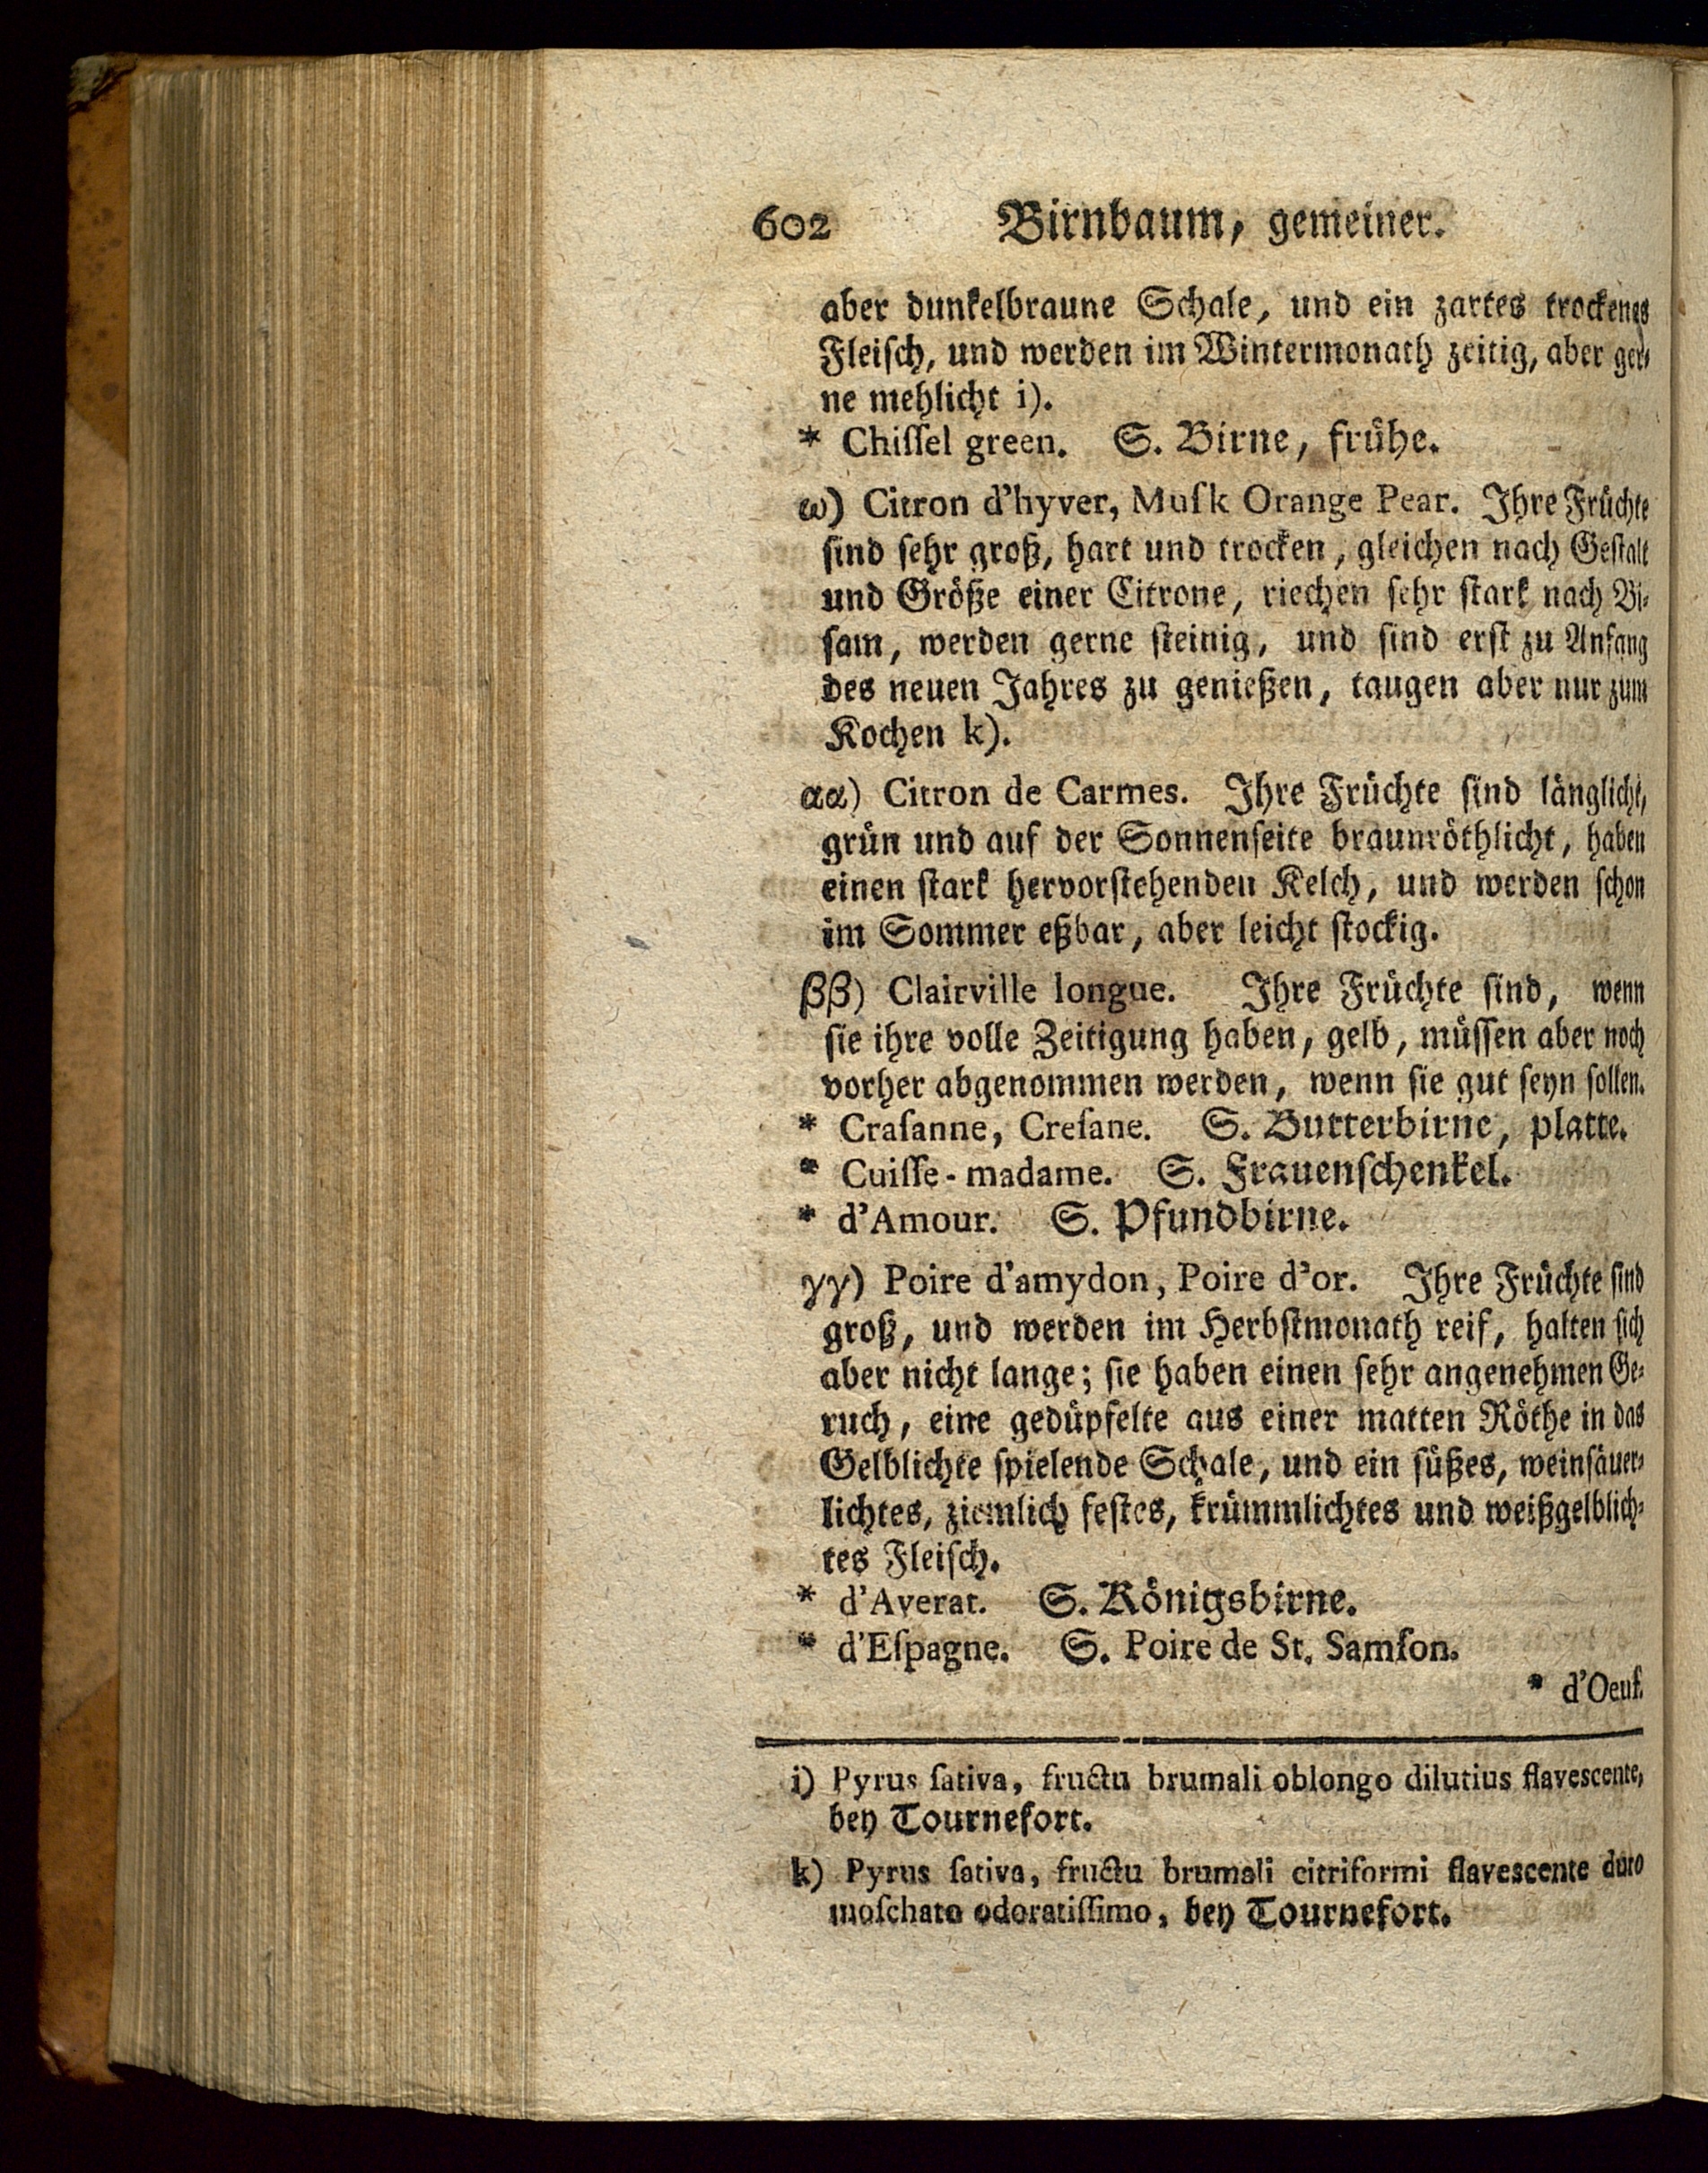 602 Birnbaum, gemeiner.
aber dunkelbraune Schale, und ein zartes trockenes
Fleiſch, und werden im Wintermonath zeitig, aber ger⸗
ne mehlicht i).
* Chiſſel green. S. Birne, frühe.
ω) Citron d'hyver, Muſk Orange Pear. Ihre Früchte
ſind ſehr groß, hart und trocken, gleichen nach Geſtalt
und Größe einer Citrone, riechen ſehr ſtark nach Bi⸗
ſam, werden gerne ſteinig, und ſind erſt zu Anfang
des neuen Jahres zu genießen, taugen aber nur zum
Kochen k).
αα) Citron de Carmes. Ihre Früchte ſind länglicht,
grün und auf der Sonnenſeite braunröthlicht, haben
einen ſtark hervorſtehenden Kelch, und werden ſchon
im Sommer eßbar, aber leicht ſtockig.
ββ) Clairville longue. Ihre Früchte ſind, wenn
ſie ihre volle Zeitigung haben, gelb, müſſen aber noch
vorher abgenommen werden, wenn ſie gut ſeyn ſollen.
* Craſanne, Creſane. S. Butterbirne, platte.
* Cuiſſe-madame. S. Frauenſchenkel.
* d'Amour. S. Pfundbirne.
γγ) Poire d'amydon, Poire d'or. Ihre Früchte ſind
groß, und werden im Herbſtmonath reif, halten ſich
aber nicht lange; ſie haben einen ſehr angenehmen Ge⸗
ruch, eine gedüpfelte aus einer matten Röthe in das
Gelblichte ſpielende Schale, und ein ſüßes, weinſäuer⸗
lichtes, ziemlich feſtes, krümmlichtes und weißgelblich⸗
tes Fleiſch.
* d'Averat. S. Königsbirne.
* d'Eſpagne. S. Poire de St. Samſon.
* d'Oeuf.
i) Pyrus ſativa, fructu brumali oblongo dilutius flavescente,
bey Tournefort.
k) Pyrus ſativa, fructu brumali citriformi flavescente duro
moſchato odoratiſſimo, bey Tournefort.